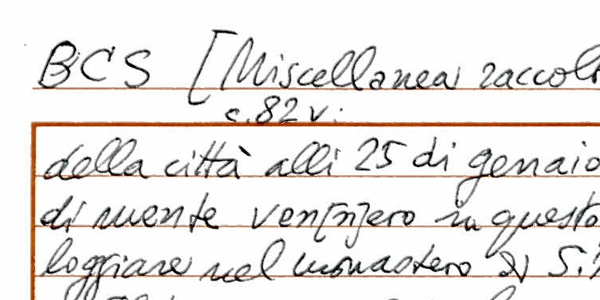 BCS [Miscellanea raccol
c. 82 v.
della città alli 25 di genaio
di mente ven[n]ero in questo
loggiare nel monastero di S.